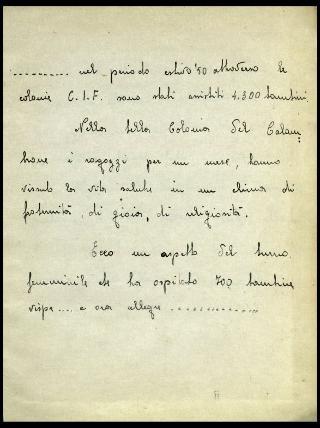 ........... nel periodo estivo '50 attraverso le
colonie C.I.F. sono stati assistiti 4.300 bambini.
Nella bella Colonia del Calam=
brone i ragazzi per un mese, hanno
vissuto la vita salute in un clima di
fraternità, di gioia, di religiosità.
Ecco un aspetto del turno
femminile che ha ospitato 700 bambine
vispe .... e ora allegre ...............